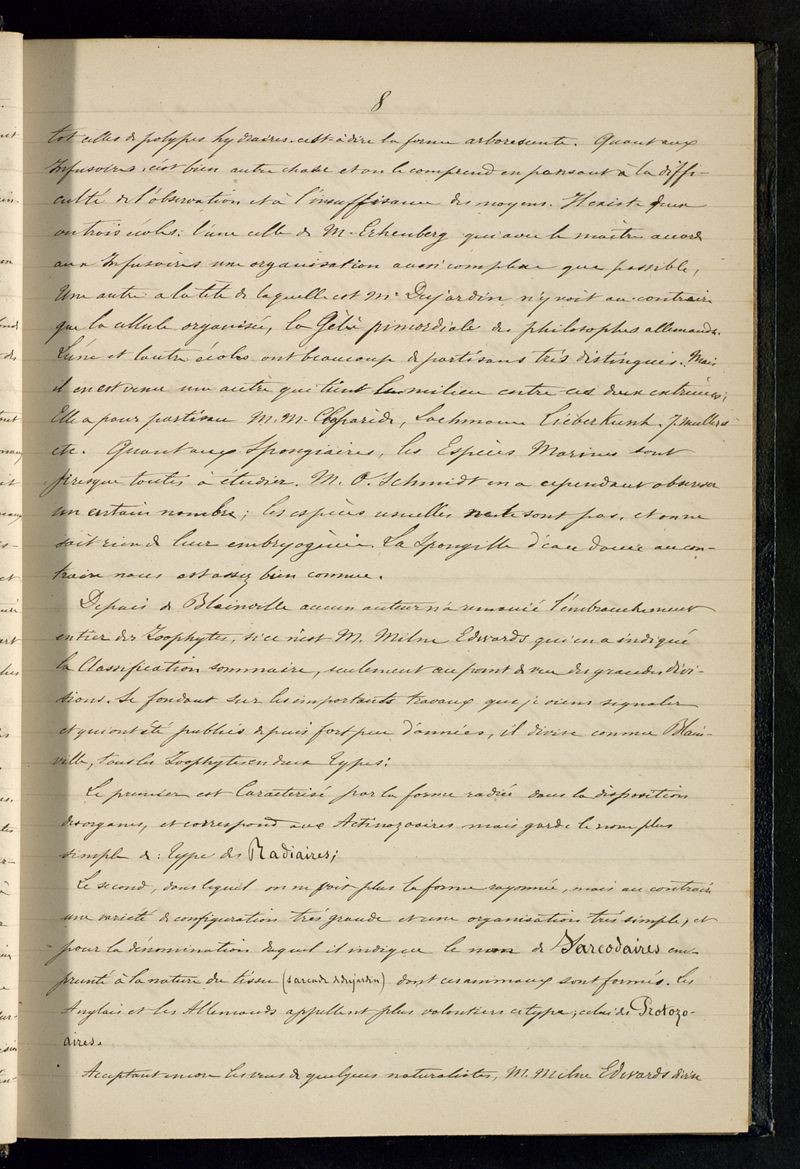 8
tot celles de polypes hydraires. c'est à dire la forme arborescente. Quant aux
Infusoires, c'est bien autre chose et on le comprend en pensant à la diffi-
culté de l'observation et à l'insuffisance des moyens. Il existe deux
ou trois écoles; l'une celle de M. Erhenberg qui avec le maître accorde
aux Infusoires une organisation aussi complexe que possible,
Une autre a la tête de laquelle est Mr Dujardin n'y voit au contraire
que la cellule organisée, la Gelée primordiale des philosophes allemands.
L'une et l'autre écoles ont beaucoup de partisans très distingués. Mais
il en est venu une autre qui tient le milieu entre ces deux extrêmes;
Elle a pour partisan M.M. Claparède, Lachmann Lieberkunh. J. mullers
etc. Quant aux Spongiaires, les Espèces Marines sont
presque toutes à étudier. M. O. Schmidt en a cependant observer
un certain nombre; les espèces usuelles ne le sont pas, et on ne
sait rien de leur embryogénie. La Spongille d'eau douce au con-
traire nous est assez bien connue.
Depuis de Blainville aucun auteur n'a remanié l'embranchement
entier des Zoophytes, si ce n'est M. Milne Edwards qui en a indiqué
la Classification sommaire, seulement au point de vue des grandes divi-
sions. Se fondant sur les importants travaux que je viens signaler
et qui ont été publiés depuis fort peu d'années, il divise comme Blain-
ville, tous les Zoophytes en deux types:
Le premier est Caractérisé par la forme radiée dans la disposition
des organes, et correspond aux Actinozoaires mais garde le nom plus
simple de: type des Radiaires;
Le second, dans lequel on ne voit plus la forme rayonnée, mais au contraire
une variété de configuration très grande et une organisation très simple, et
pour la dénomination duquel il indique le nom de Sarcodaires em-
prunté à la nature du tissu (sarcode Dujardin) dont ces animaux sont formés. Les
Anglais et les Allemands appellent plus volontiers ce type; celui des Protozo-
aires.
Acceptant encore les vues de quelques naturalistes, M. Milne Edwards divise